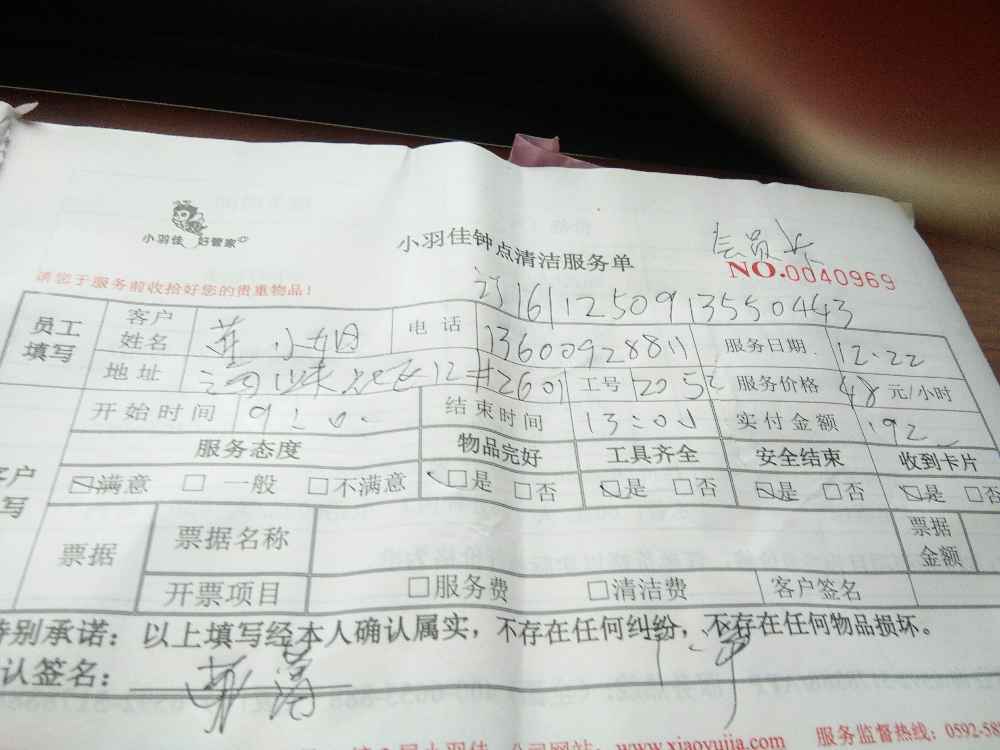 小羽佳 好管家
小羽佳钟点清洁服务单
会员卡
NO.0040969
请您于服务前收拾好您的贵重物品！
订1611250913550443
员工填写 客户姓名 小姐 电话 13600928811 服务日期 12.22
地址 12#2601 工号 2052 服务价格 48 元/小时
开始时间 9:00 结束时间 13:00 实付金额 192
服务态度 物品完好 工具齐全 安全结束 收到卡片
客户 填写 满意 一般 不满意 是 否 是 否 是 否 是 否
票据 票据名称 票据金额
开票项目 服务费 清洁费 客户签名
特别承诺：以上填写经本人确认属实，不存在任何纠纷，不存在任何物品损坏。
认签名：
小羽佳 公司网站：www.xiaoyujia.com 服务监督热线：0592-58